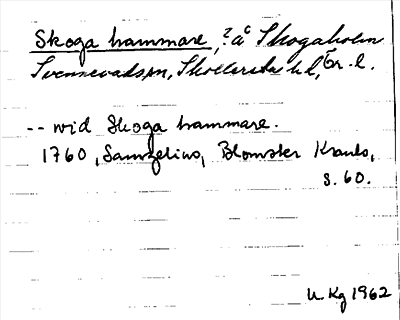 Skoga hammare, ? å Skogaholm
Svennevads sn, Skollersta hd, Ör. l.
-- wid Skoga hammare.
1760, Samzelius, Blomster Krants,
s. 60.
U. Kg 1962